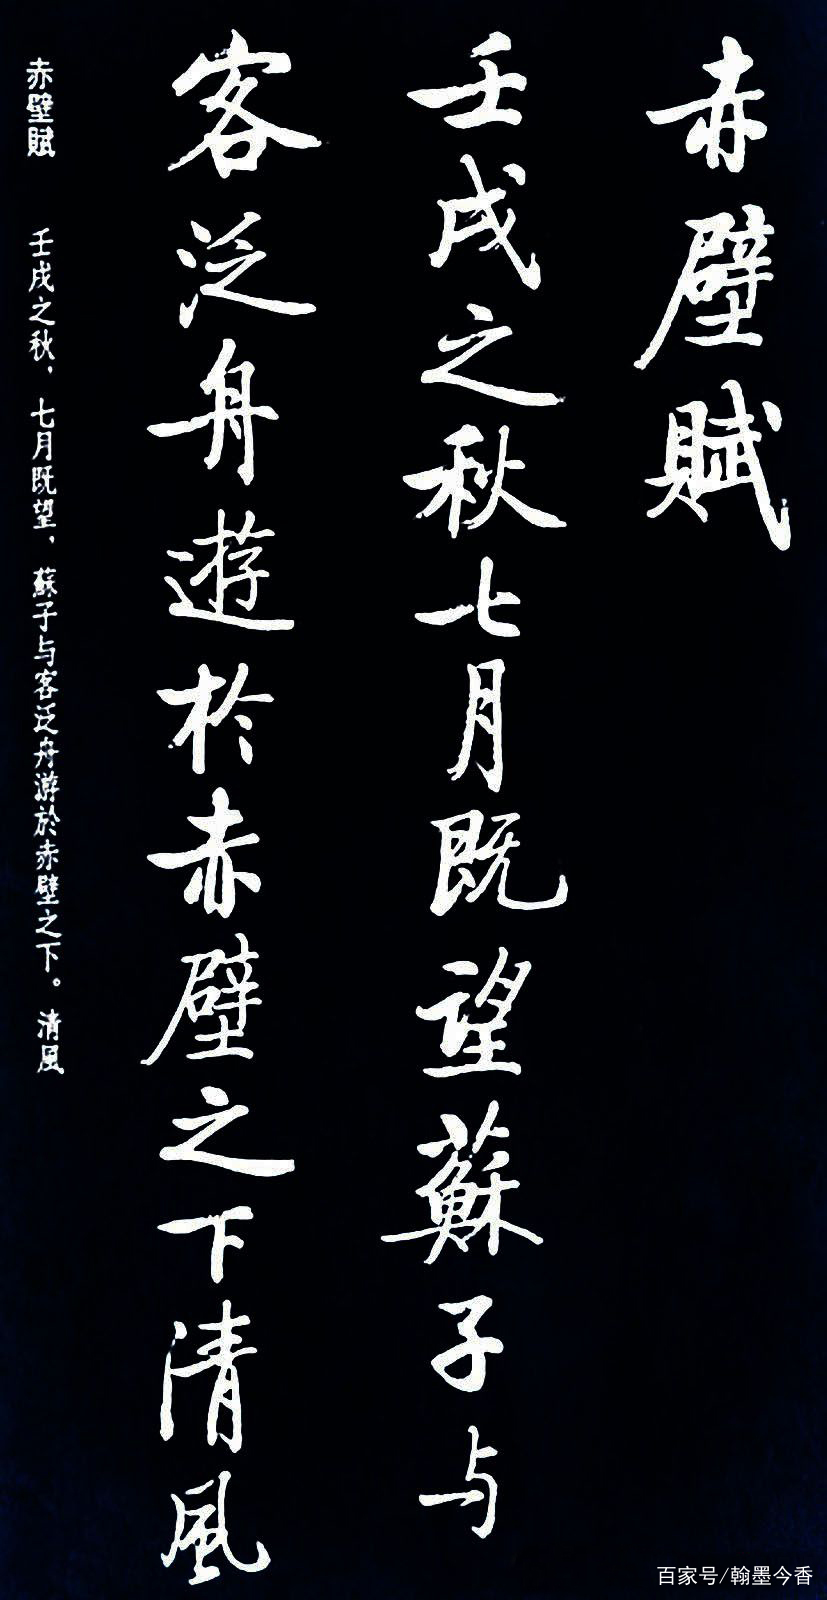 赤壁賦
壬戌之秋七月既望蘇子与
客泛舟遊於赤壁之下清風
赤壁賦 壬戌之秋，七月既望，蘇子与客泛舟游於赤壁之下。清風
百家号/翰墨今香